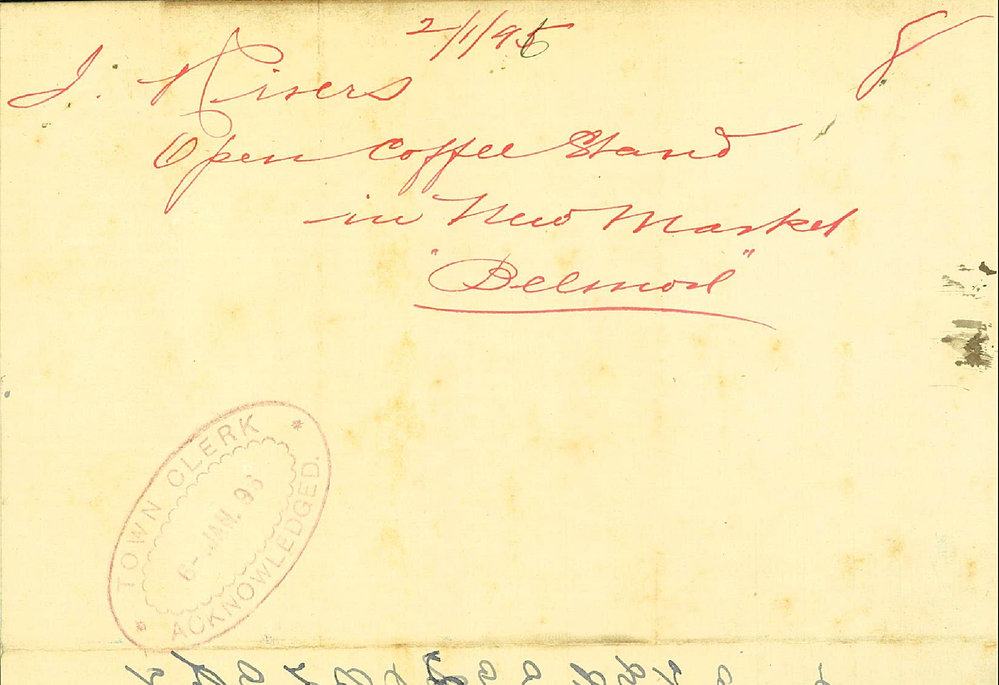 2/1/96
8
J. Rivers
Open Coffee Stand
in New Market
"Belmont"
TOWN CLERK
6- JAN. 96
ACKNOWLEDGED.